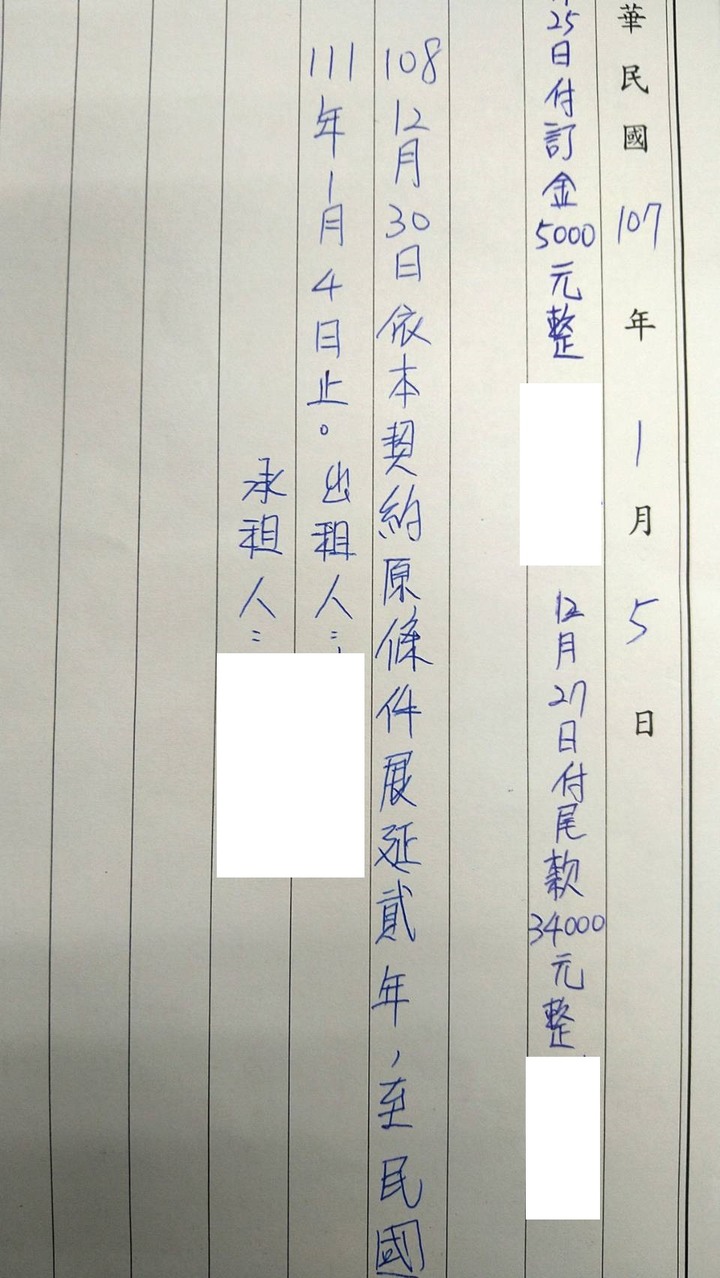 華民國107年1月5日
25日付訂金5000元整 12月27日付尾款34000元整
108 12月30日依本契約原條件展延貳年,至民國
111年1月4日止。出租人:
承租人: